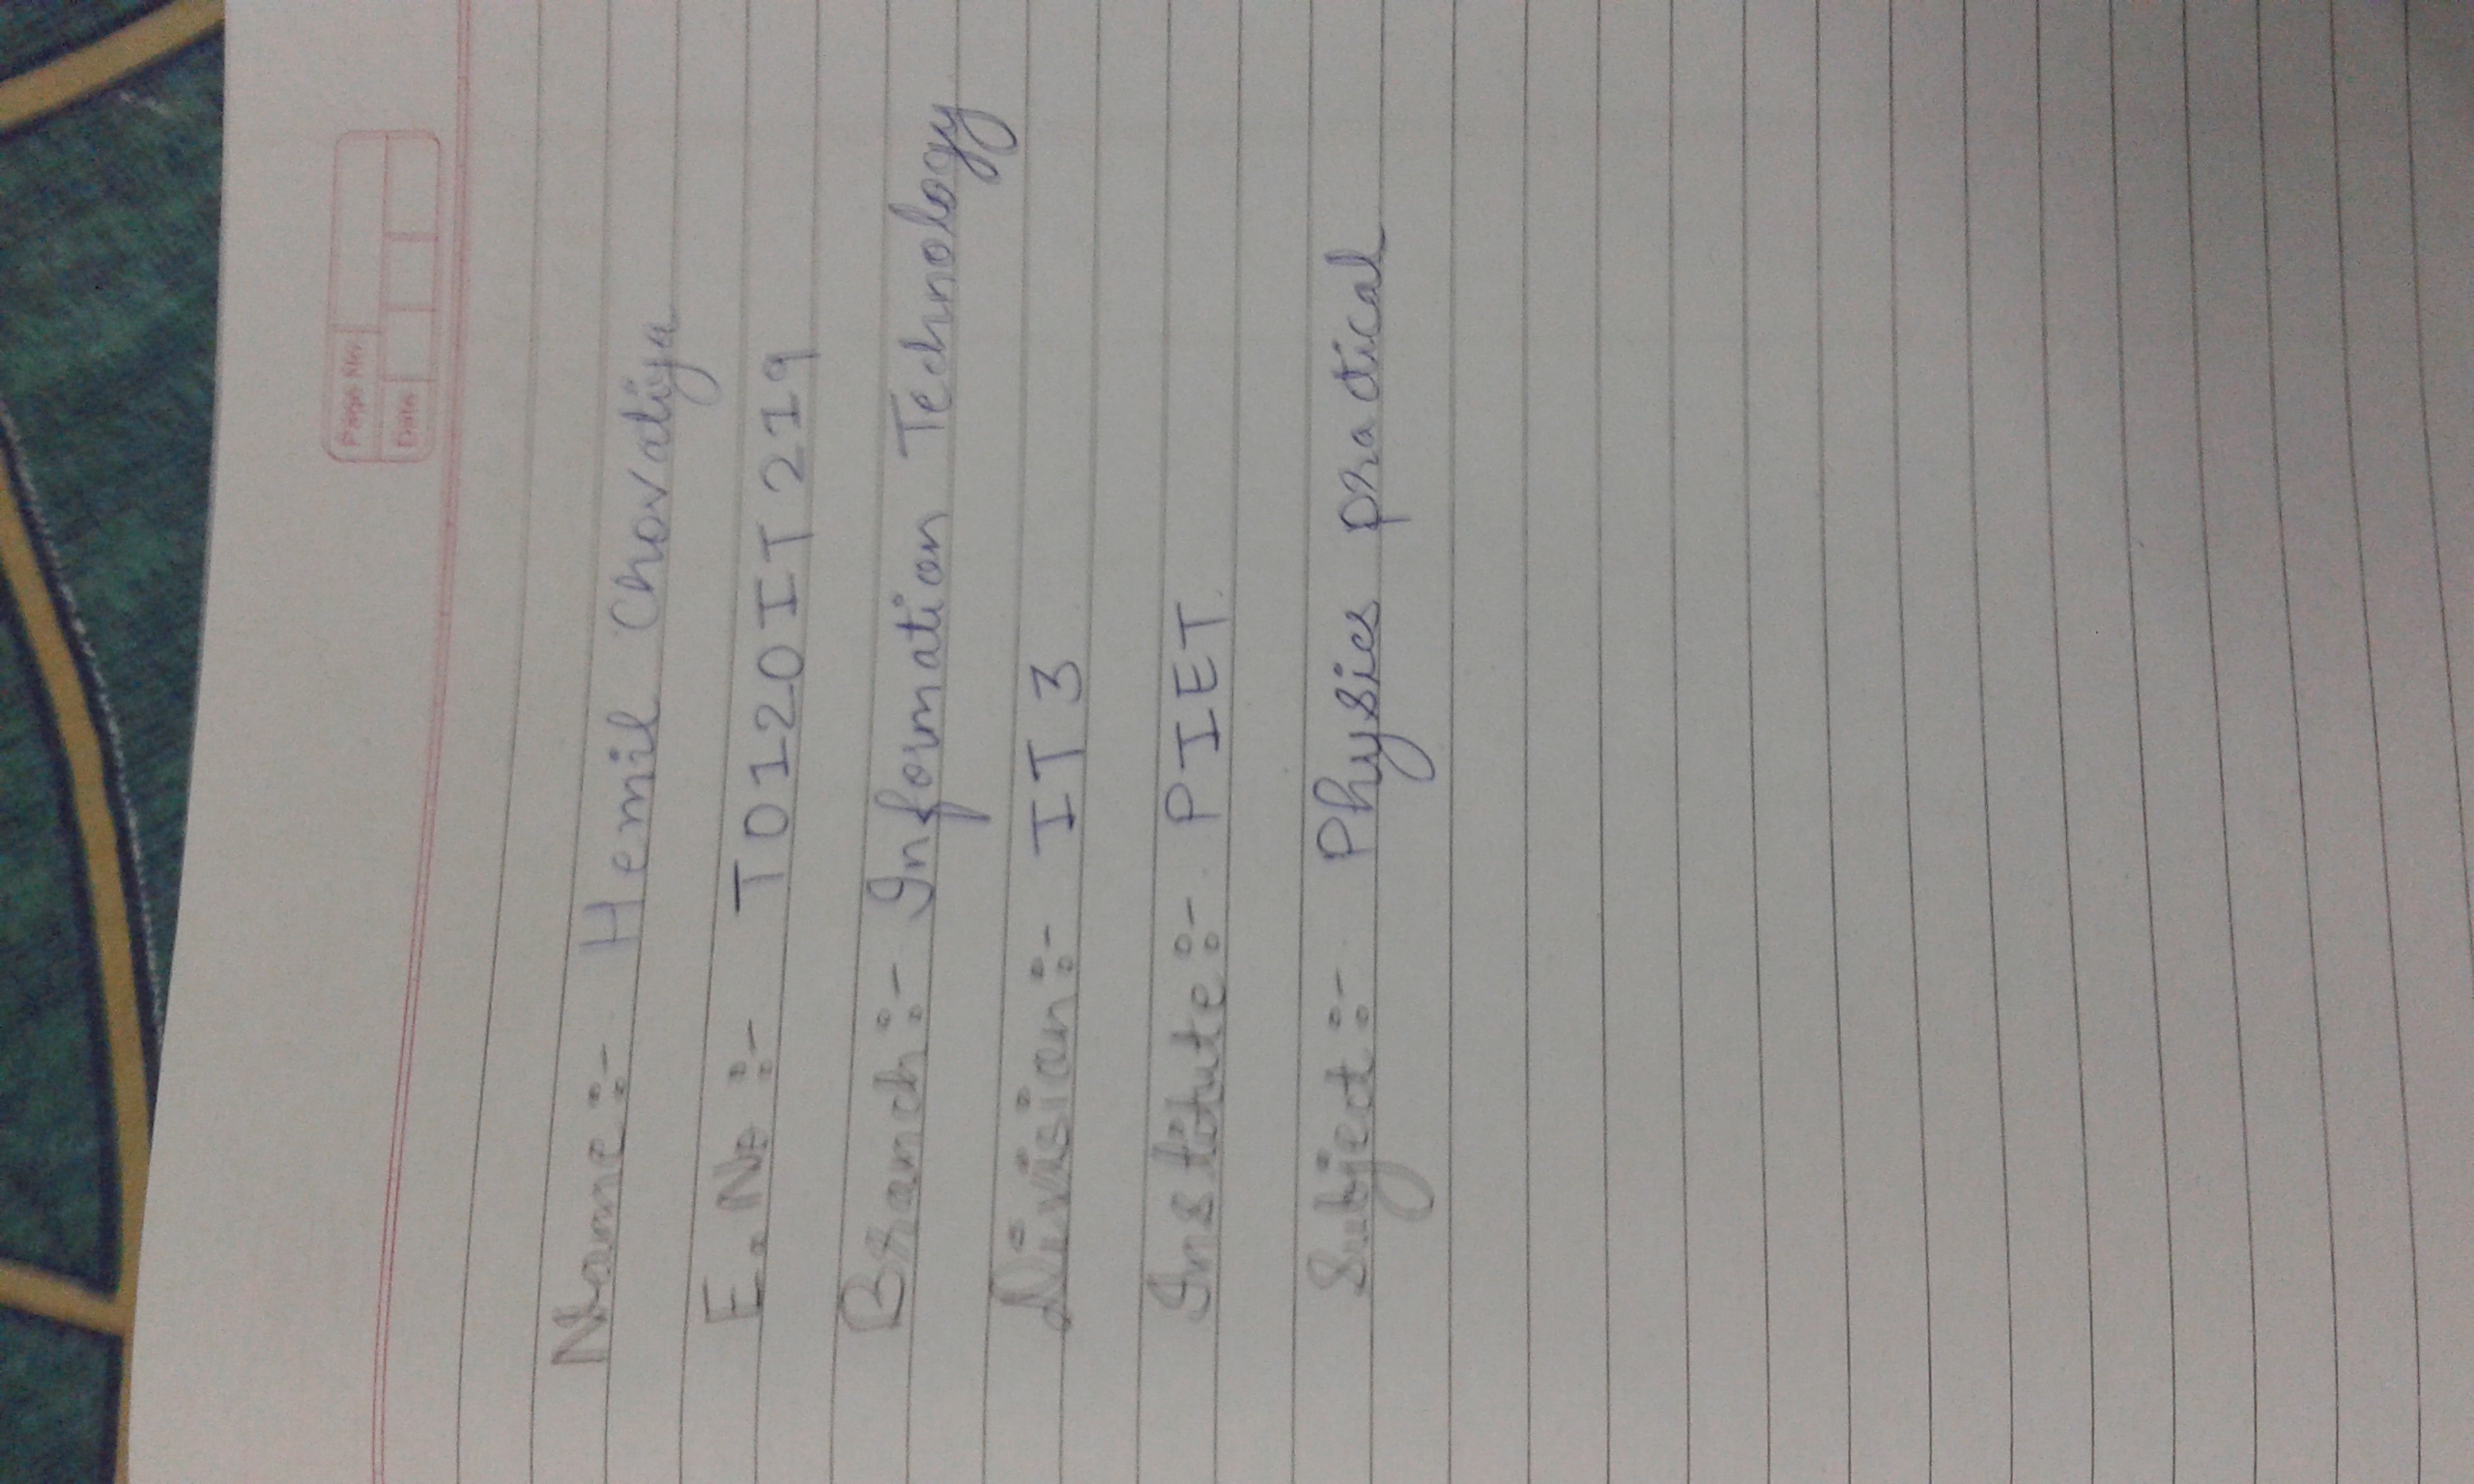 Page No.
Date
Name:- Hemil Chovatiya
E. No :- T0120IT219
Branch:- Information Technology
Division:- IT 3
Institute:- PIET.
Subject:- Physics practical